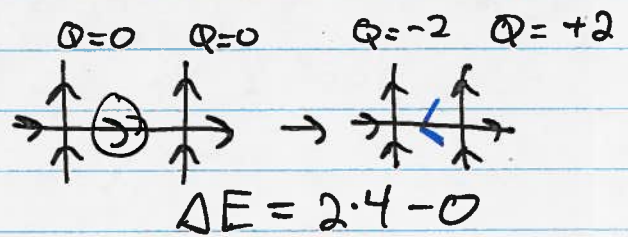 Q=0 Q=0 Q=-2 Q=+2
→
ΔE = 2·4-0